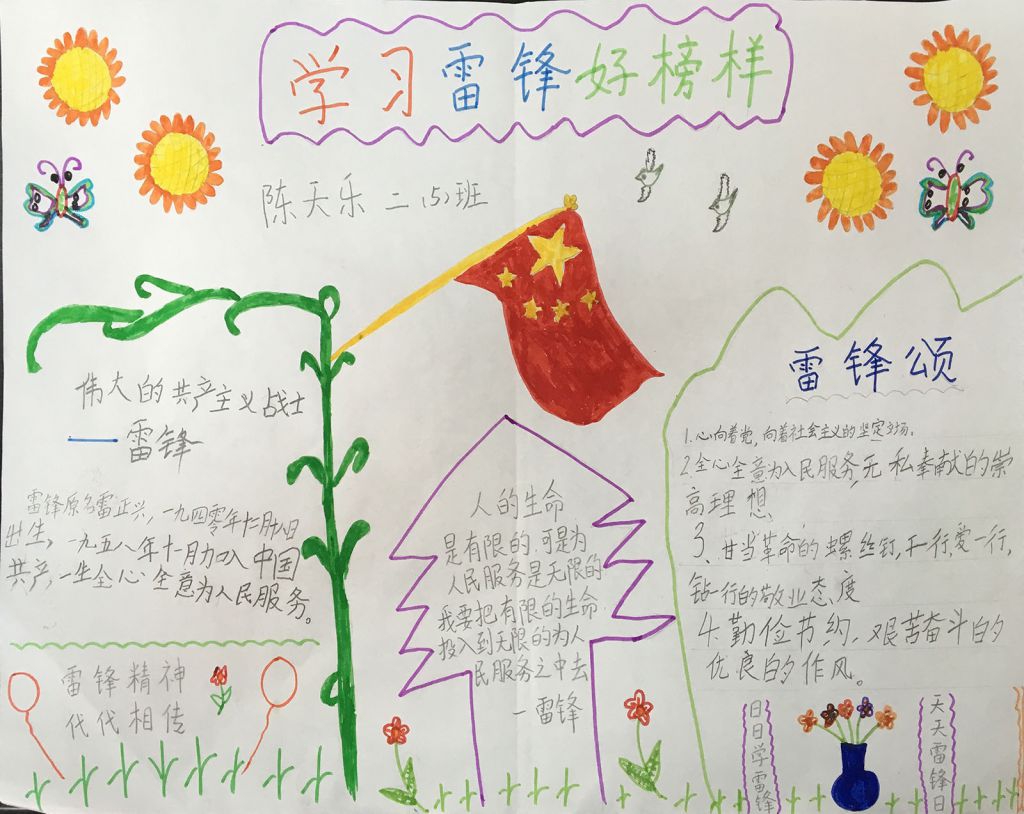 学习雷锋好榜样
陈天乐 二(5)班
伟大的共产主义战士
一雷锋
雷锋原名雷正兴,一九四零年十二月十八日
出生,一九五八年十一月加入中国
共产,一生全心全意为人民服务。
雷锋精神
代代相传
人的生命
是有限的,可是为
人民服务是无限的
我要把有限的生命
投入到无限的为人
民服务之中去
一雷锋
雷锋颂
1.心向着党,向着社会主义的坚定立场。
2.全心全意为人民服务,无私奉献的崇
高理想
3.甘当革命的螺丝钉,干一行,爱一行,
钻一行的敬业态度
4.勤俭节约,艰苦奋斗的
优良的作风。
日日学雷锋
天天雷锋日